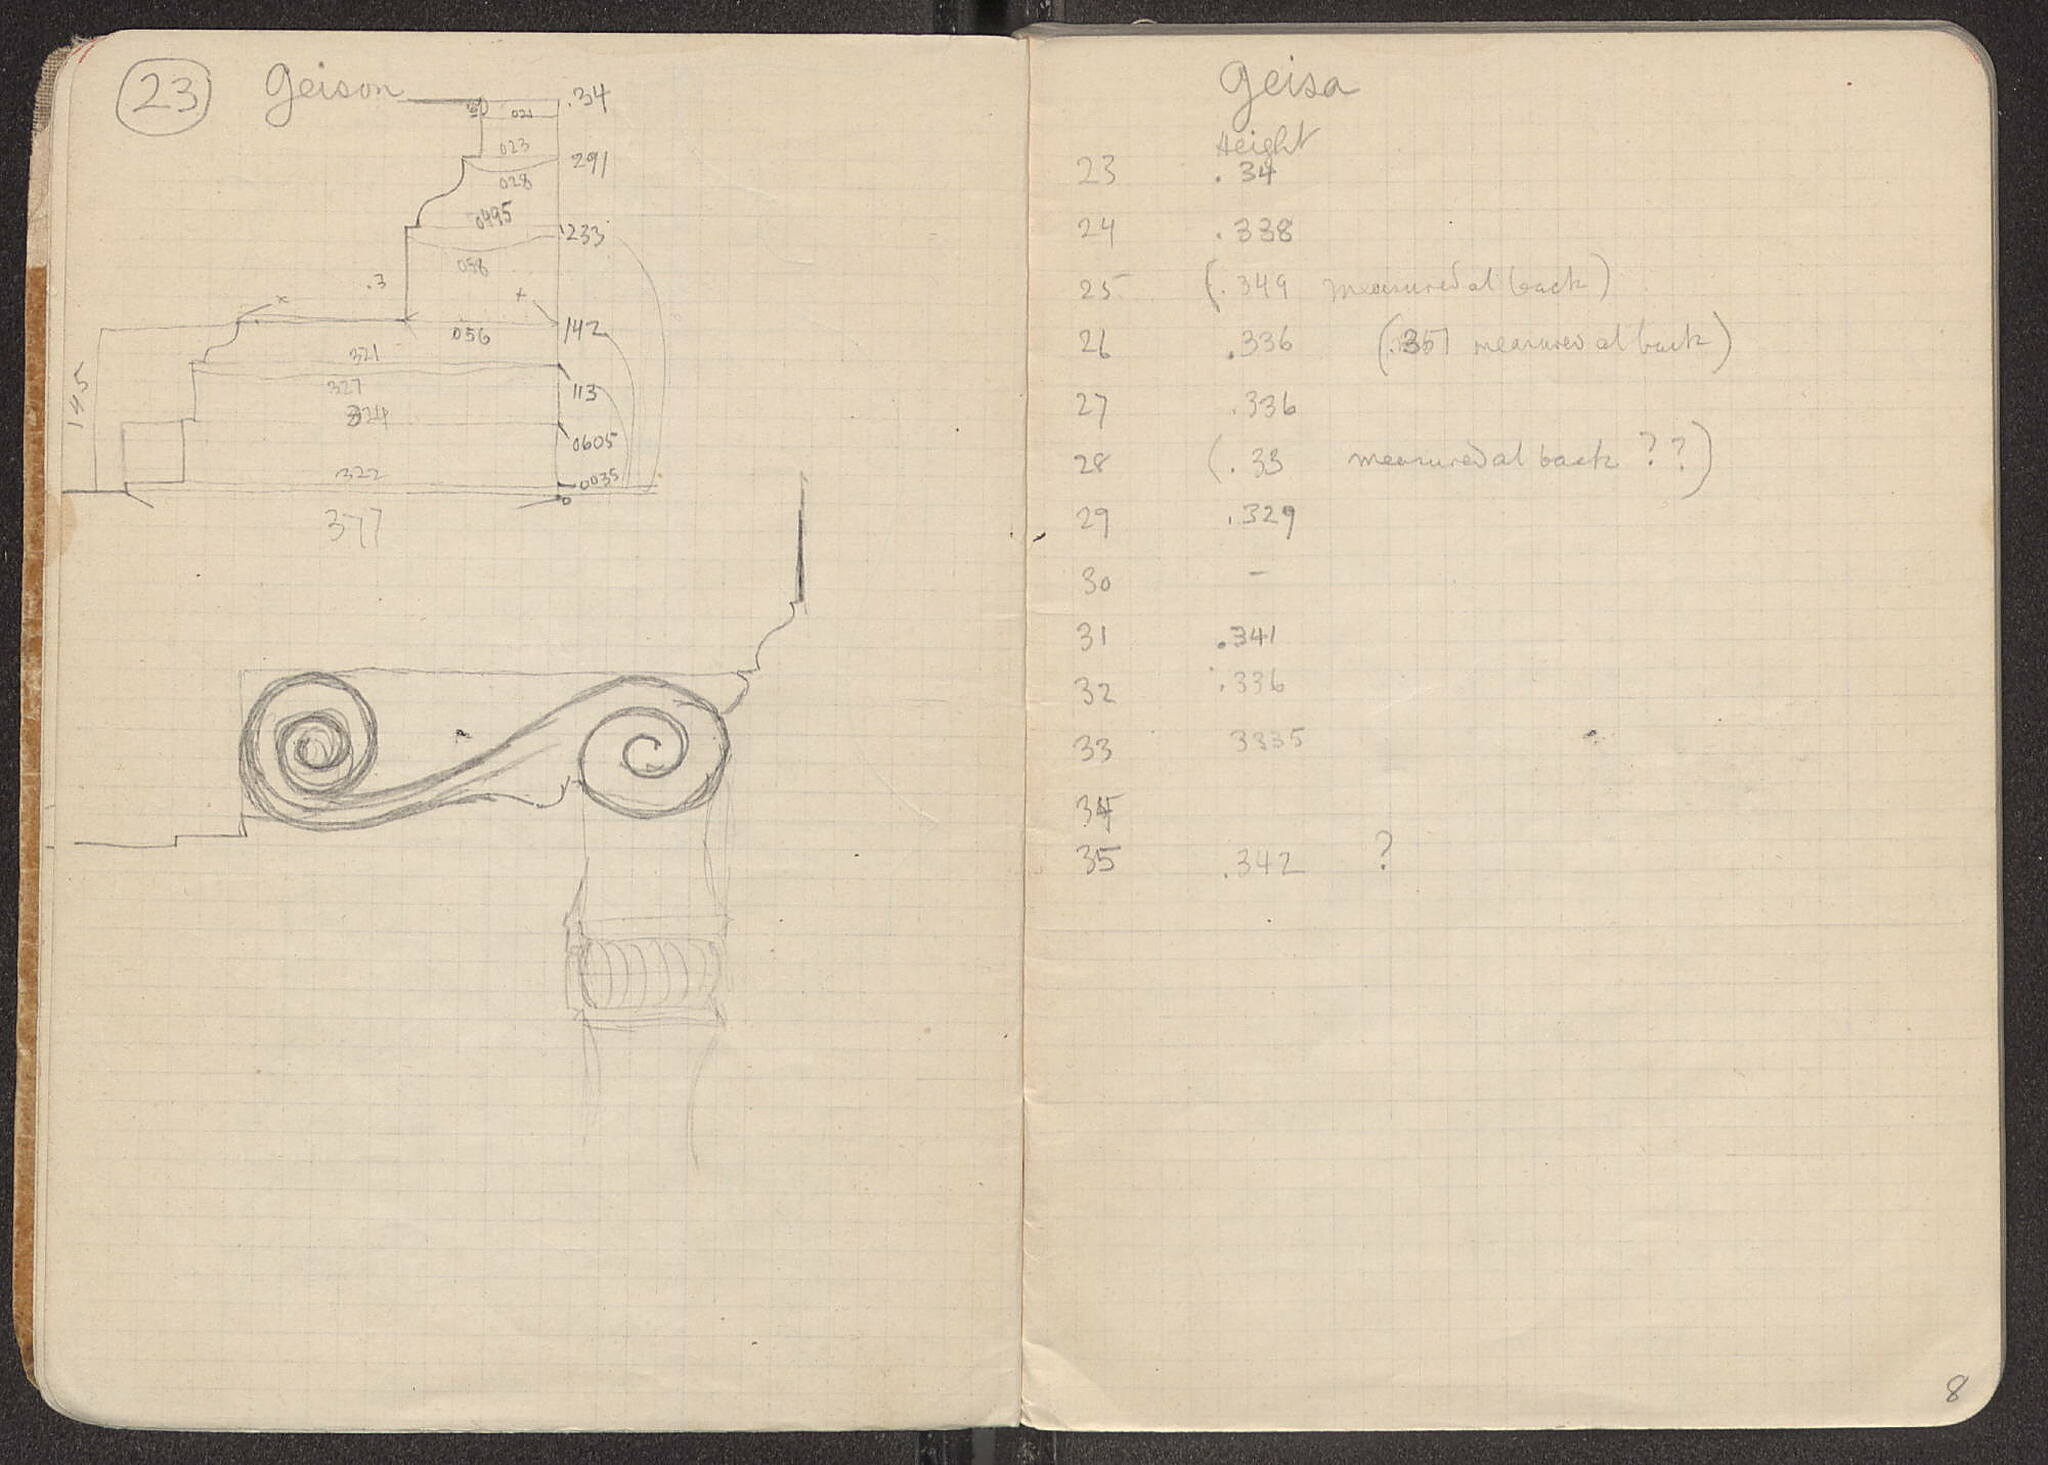 23 Geison
.34
021
023
291
028
0495
233
058
.3
x
+
056
142
321
14.5
327
113
324
0605
322
0035
0
377
Geisa
Height
23 .34
24 .338
25 (.349 measured at back)
26 .336 (.351 measured at back)
27 .336
28 (.33 measured at back ??)
29 .329
30 –
31 .341
32 .336
33 3335
34
35 .342 ?
8